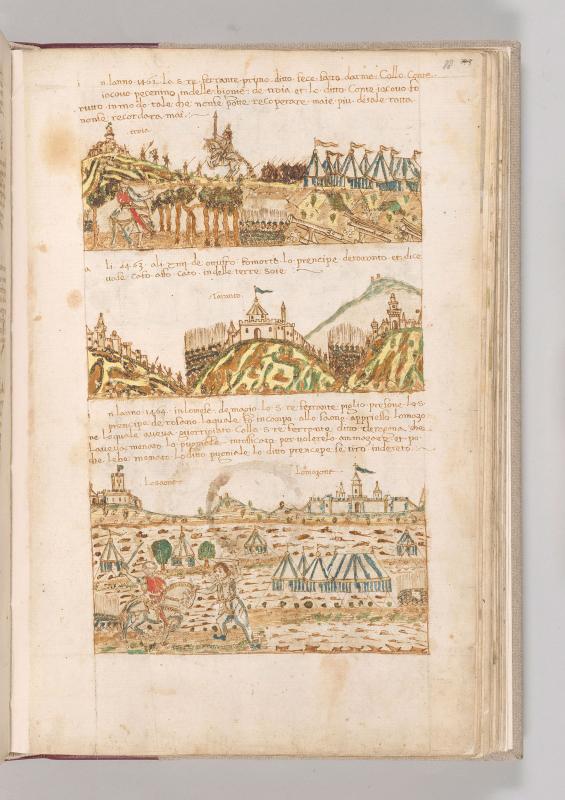 n lanno 1462 lo s re ferrante primo ditto fece fatto darme Collo Conte
iacovo pecenino indelle bionie de troia et lo ditto Conte iacovo fo
rutto inmodo tale che nonse potte recoperare maie piu detale rotta
nonse recordara mai
troia
li 1463 ali xiiii de fo morto lo prencipe detaranto et dice
vase cato asso cato indelle terre soie
Taranto
n lanno 1464 inlo mese de magio lo s re ferrante piglio presone lo s
prencipe de rosano laquale fo incampo allo saono appriesso lomazo
ne loquale aveva lo s re ferrante ditto
laveva menato lo pugniale per volerelo ammazare et po
che lebe menato lo ditto pugniale lo ditto prencepe se tiro indereto
Losaone
Lomazone